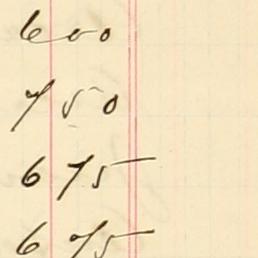 600
750
675
675